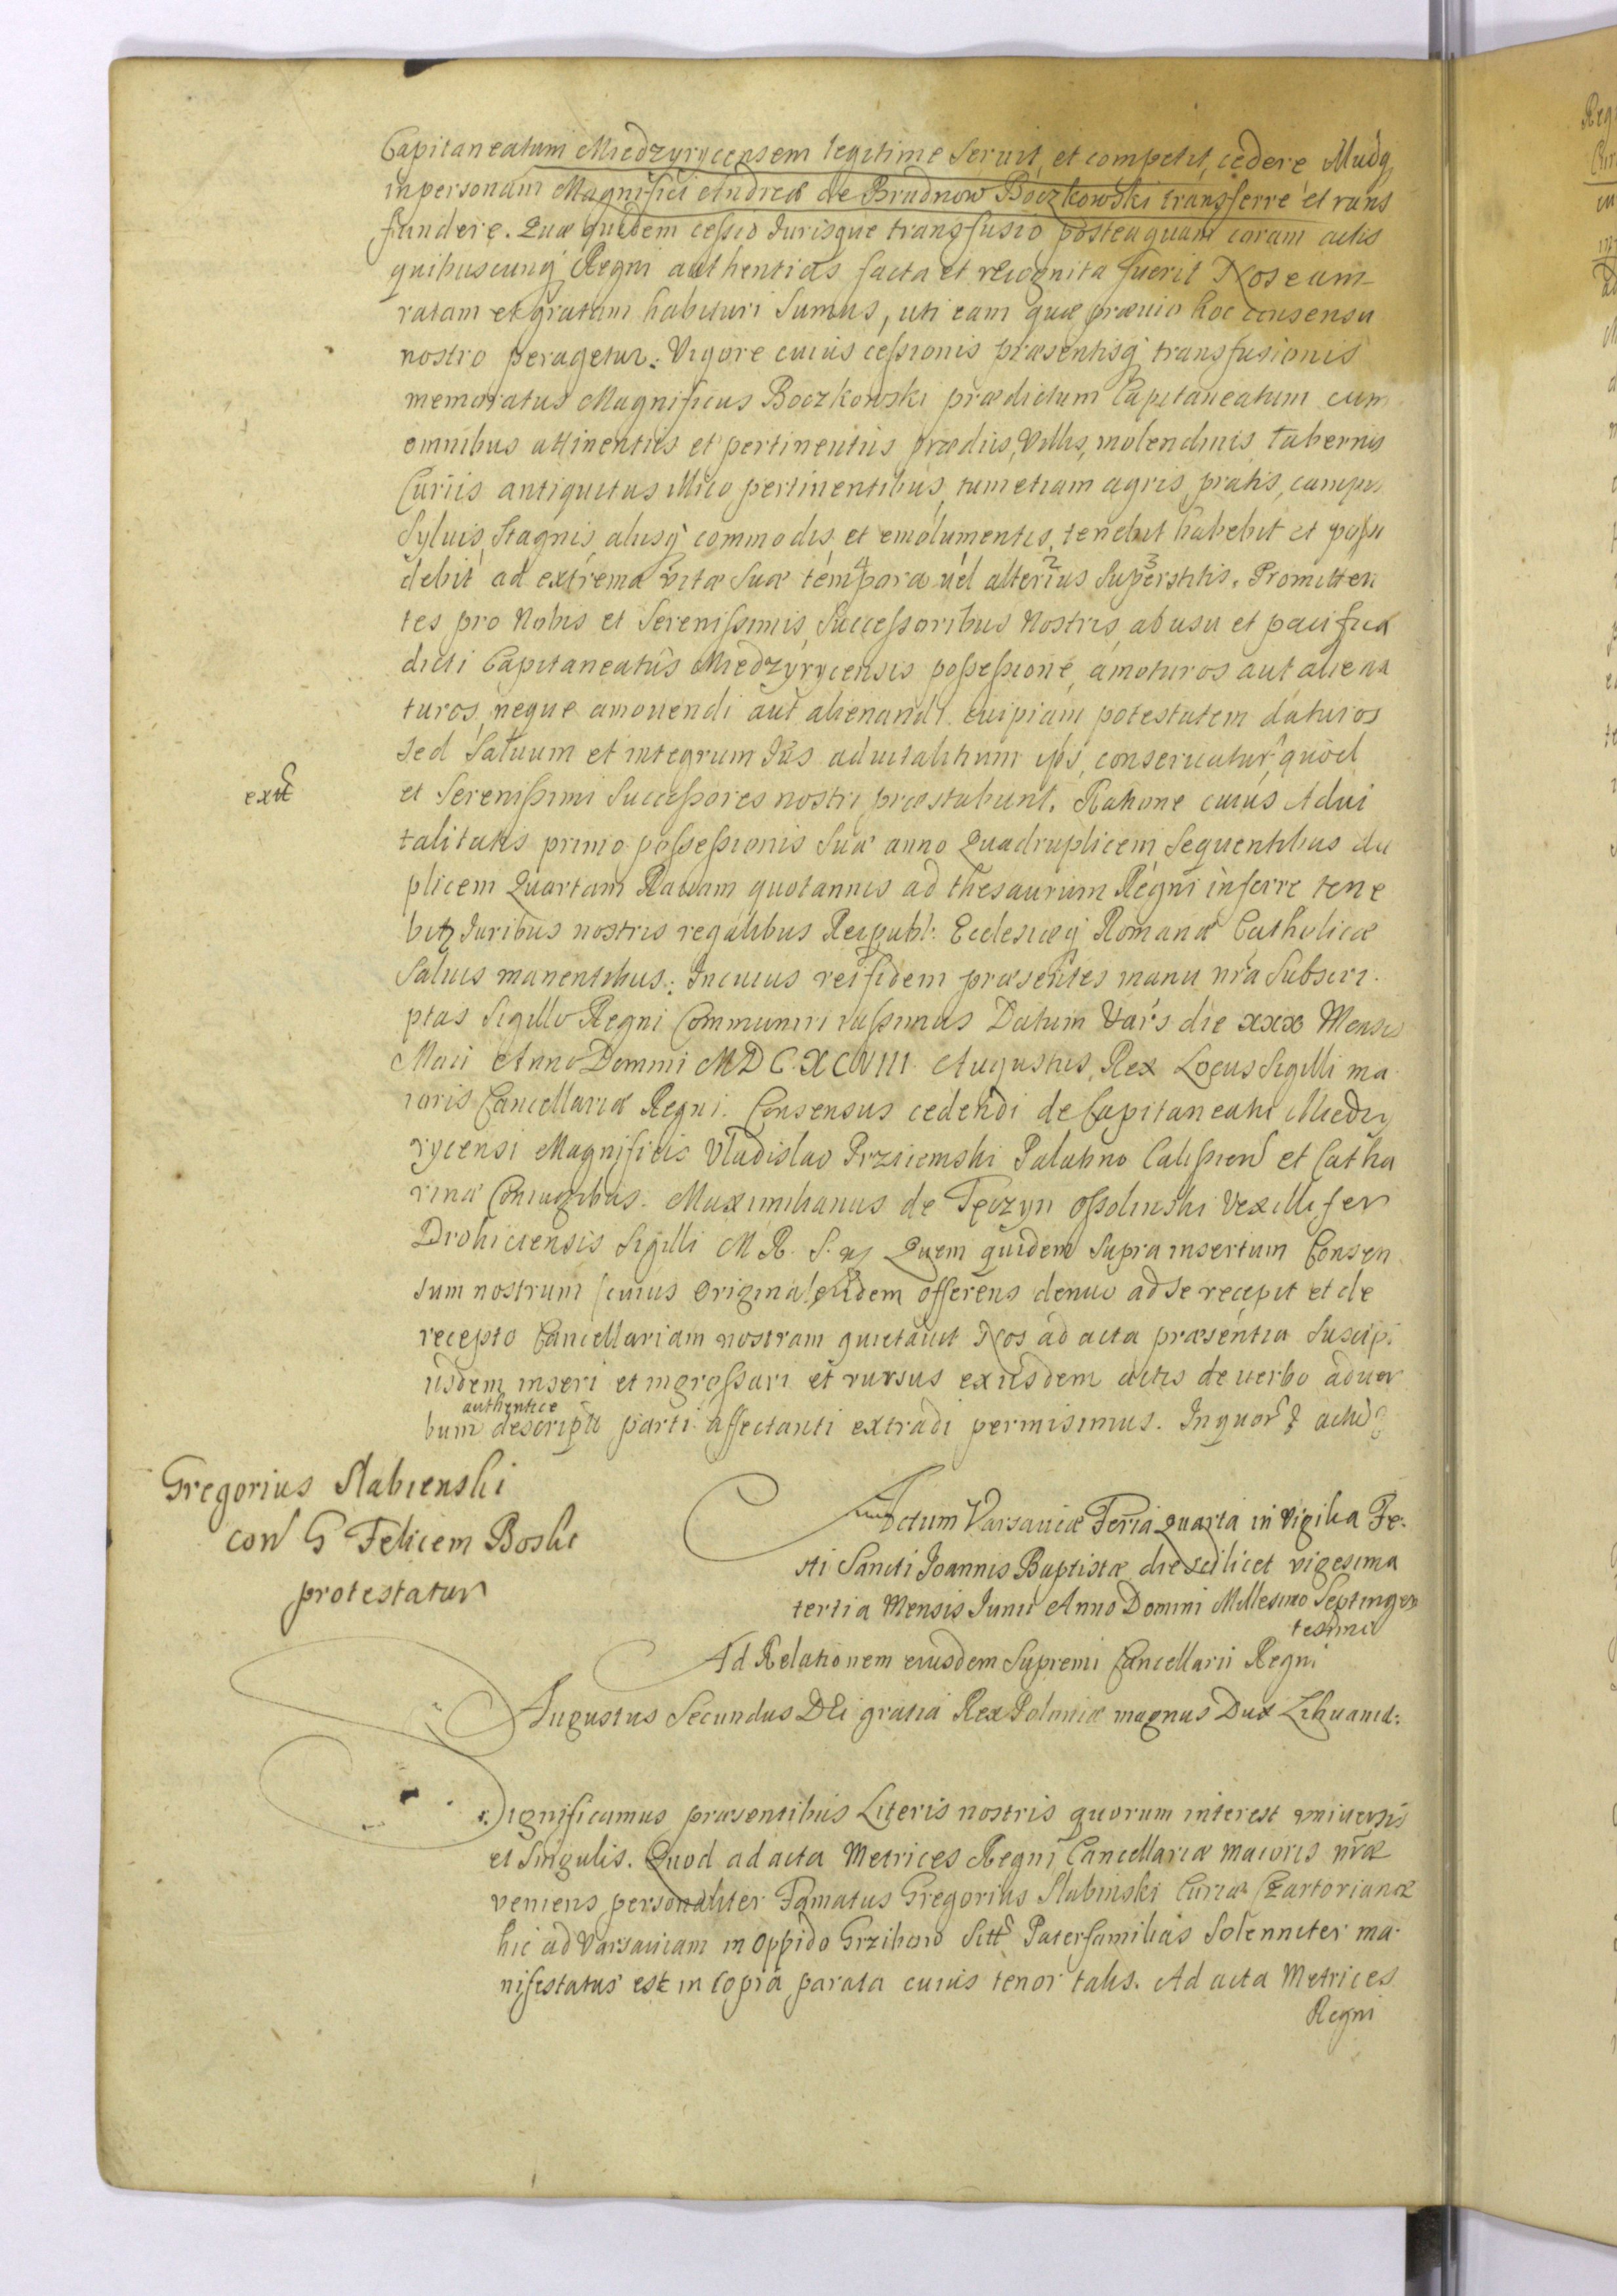 Capitaneatum Miedzyrycensem legitime Seruit, et competit, cedere Illudq
in personam Magnifici Andreæ de Brudnow Boczkowski transferre et rans
fundere. Quæ quidem cessio Iurisque transfusio posteaquam coram actis
quibuscunq Regni authenticis facta et recognita fuerit Nos eam
ratam et gratam habituri Sumus, uti eam quæ præuio hoc consensu
nostro peragetur. Vigore cuius cessionis præsentisq transfusionis
memoratus Magnificus Boczkowski prædictum Capitaneatum cum
omnibus attinentiis et pertinentiis prædiis, Villis, molendinis Tabernis
Curiis antiquitus illico pertinentibus, tum etiam agris, pratis, campis
Syluis, Stagnis, aliisq commodis, et emolumentis, tenebit habebit et possi
debit ad extrema vitæ Suæ tempora uel alterius Superstitis. Promitten
tes pro Nobis et Serenissimis Successoribus Nostris, ab usu et pacifica
dicti Capitaneatus Miedzyrycensis possessione, amoturos aut aliena
turos, neque amouendi aut alienandi cuipiam potestatem daturos
Sed Saluum et integrum Ius aduitalitium ipsi, conseruatur, quod
et Serenissimi Successores nostri præstabunt. Ratione cuius Adui
talitatis primo possessionis Suæ anno Quadruplicem Sequentibus du
plicem Quartam Rauam quotannis ad thesaurum Regni inferre tene
bitz Iuribus nostris regalibus Reipubl: Ecclesiæq Romanæ Catholicæ
Saluis manentibus. In cuius rei fidem præsentes manu nra Subscri
ptas Sigillo Regni Communiri iussimus Datum Vars die xxx Mensis
Maii Anno Domini MDC.XCVIII. Augustus, Rex Locus Sigilli ma
ioris Cancellariæ Regni. Consensus cedendi de Capitaneatu Miedzy
rycensi Magnificis Vladislao Przyiemski Palatino Calissien et Catha
rinæ Coniugibus. Maximilianus de Tęczyn Ossolinski Vexillifer
Drohiciensis Sigilli M R. S. Quem quidem Supra insertum Consen
sum nostrum (cuius Original eidem offerens denuo ad se recepit et de
recepto Cancellariam nostram quietauit Nos ad acta præsentia Suscipi
iisdem inseri et ingrossari et rursus ex iisdem actis de uerbo ad uer
authentice
bum descripta parti affectanti extradi permisimus. In quor
exit
Gregorius Slabienski
con G Felicem Boski
protestatur
Actum Varsauiæ Feria quarta in Vigilia Fe-
sti Sancti Ioannis Baptistæ die scilicet vigesima
tertia Mensis Iunii Anno Domini Millesimo Septingen
tesimo
Ad Relationem eiusdem Supremi Cancellarii Regni
Augustus Secundus DEi gratia Rex Poloniæ magnus Dux Lithuaniæ:
Significamus præsentibus Literis nostris quorum interest vniuersis
et Singulis. Quod ad acta Metrices Regni Cancellariæ maioris nræ
veniens personaliter Famatus Gregorius Slabinski Curiæ Czartorianæ
hic ad Varsauiam in Oppido Grzibow Sitt Paterfamilias Solenniter ma-
nifestatus est in copia parata cuius tenor talis. Ad acta Metrices
Regni